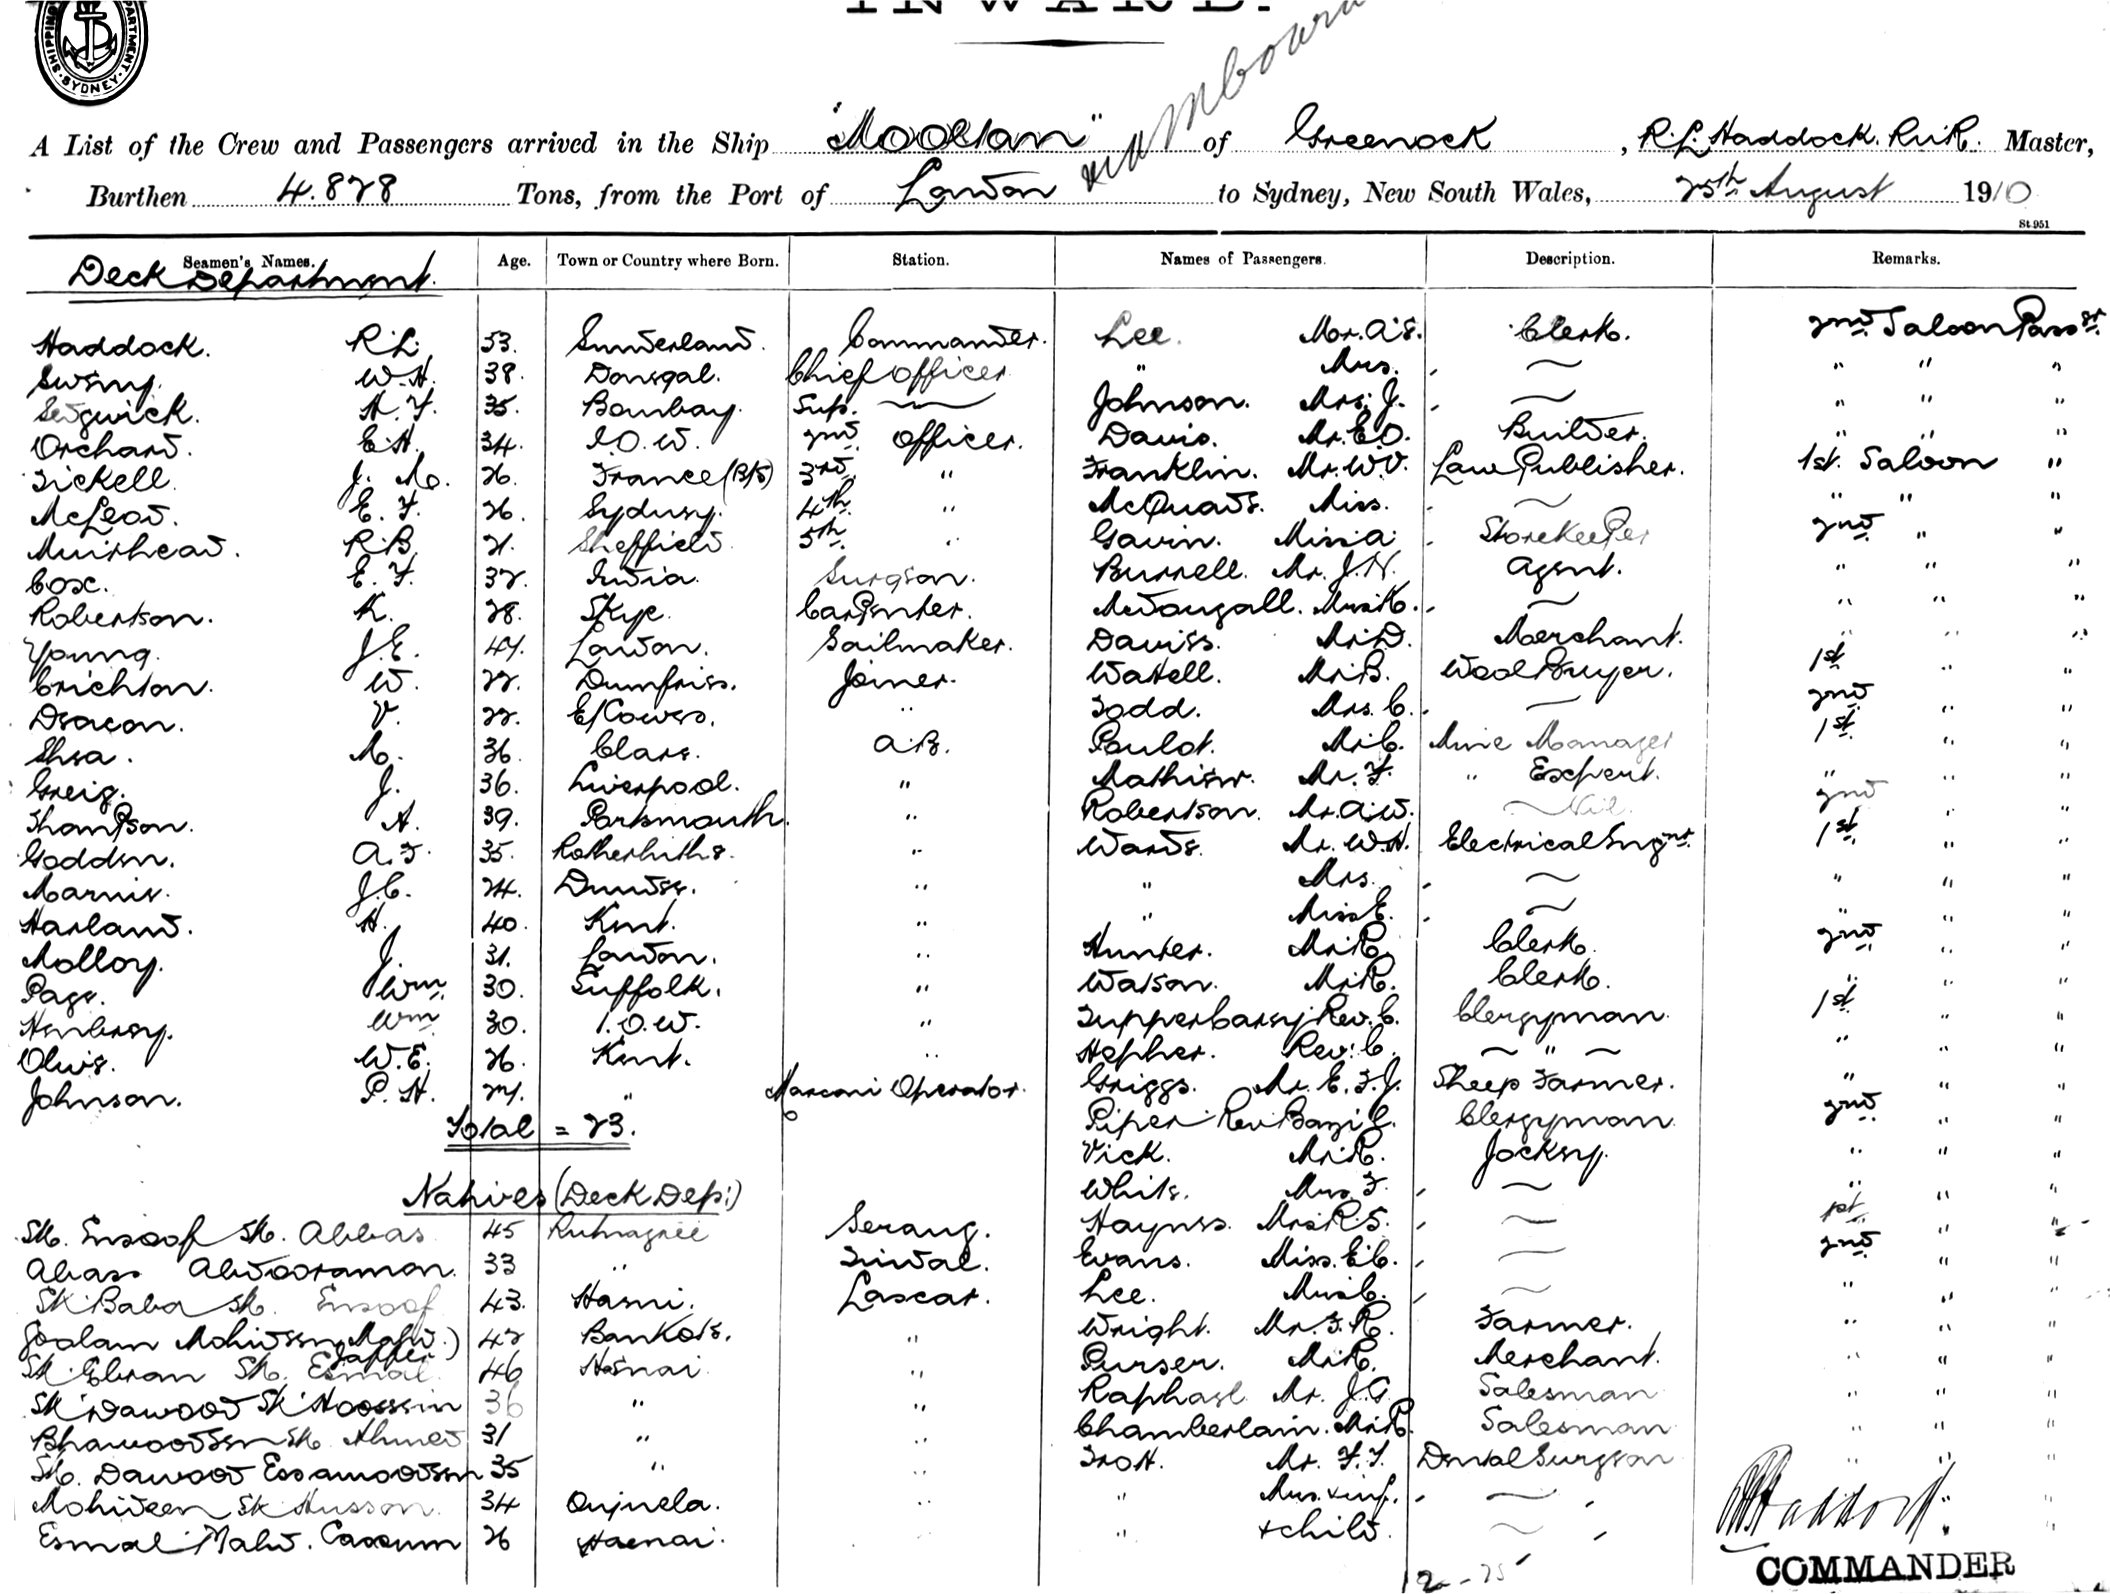 INWARD.
SHIPPING DEPARTMENT. SYDNEY.
via Melbourne
A List of the Crew and Passengers arrived in the Ship "Mooltan" of Greenock, R. L. Haddock. R.N.R. Master,
Burthen 4.828 Tons, from the Port of London to Sydney, New South Wales, 25th August 1910
St. 951
Seamen's Names. Age. Town or Country where Born. Station. Names of Passengers. Description. Remarks.
Deck Department.
Haddock. R.L. 53. Sunderland. Commander. Lee. Mr. A.E. Clerk. 2nd Saloon Passgr.
Sweny. W.H. 38. Donegal. Chief officer " Mrs. " " "
Sedgwick. H.F. 35. Bombay. Sup. Johnson. Mrs. J. " " "
Orchard. E.H. 34. I.O.W. 2nd officer. Davis. Mr. E.O. Builder. " " "
Tickell. J. Mc. 26. France (B/S) 3rd " Franklin. Mr. W.V. Law Publisher. 1st. Saloon "
McLeod. E.F. 26. Sydney. 4th " McQuade. Miss. " " "
Muirhead. R.B. 21. Sheffield. 5th " Gavin. Miss A. Storekeeper 2nd " "
Cox. E.F. 32. India. Surgeon. Burrell. Mr. J.N. Agent. " " "
Robertson. K. 28. Skye. Carpenter. McDougall. Miss K. " " "
Young. J.E. 47. London. Sailmaker. Daviss. Mr. D. Merchant. " " "
Crichton. W. 22. Dumfries. Joiner. Watell. Mr. B. Wool Buyer. 1st " "
Deacon. V. 22. E/Cowes. " Todd. Mrs. C. 2nd " "
Shea. M. 36. Clare. A.B. Poulot. Mr. C. Mine Manager 1st. " "
Greig. J. 36. Liverpool. " Mathieu. Mr. F. " Expert. " " "
Thompson. A. 39. Portsmouth. " Robertson. Mr. A.W. Nil. 2nd " "
Godden. A.F. 35. Rotherhithe. " Warde. Mr. W.H. Electrical Engnr. 1st. " "
Marnie. J.C. 24. Dundee. " " Mrs. " " "
Harland. H. 40. Kent. " " Miss E. " " "
Molloy. J. 31. London. " Hunter. Mr. R. Clerk. 2nd " "
Page. Wm. 30. Suffolk. " Watson. Mr. R. Clerk. " " "
Henbrey. Wm. 30. I.O.W. " Tupper Carey Rev. C. Clergyman 1st " "
Olive. W.E. 26. Kent. " Hepher. Rev. C. " " " "
Johnson. P.H. 24. " Marconi Operator. Griggs. Mr. E.F.J. Sheep Farmer. " " "
Total = 23. Piper Rev. Bazil. Clergyman 2nd " "
Vick. Mr. R. Jockey. " " "
Natives (Deck Dep:) White. Mrs. F. " " "
Sk. Ensoof Sk. Abbas 45 Rutnagree Serang. Haynes. Mrs. R.S. 1st. " "
Abass Abdooraman. 33 " Tindal. Evans. Miss. E.C. 2nd " "
Sk. Baba Sk. Ensoof 43. Harni. Lascar. Lee. Miss C. " " "
Goolam Mohideen Mahd. Jaffer) 42 Bankote. " Wright. Mr. F.R. Farmer. " " "
Sk. Ebram Sk. Esmal. 46 Harnai " Purser. Mr. R. Merchant. " " "
Sk. Dawood Sk. Hoossein 36 " Raphael Mr. J.G. Salesman " " "
Bhawoodeen Sk. Ahmed 31 " Chamberlain. Mr. R. Salesman " " "
Sk. Dawood Essamoodeen 35 " " Trott. Mr. F.T. Dental Surgeon " " "
Mohideen Sk Husson. 34 Onjnela. " Mrs. + inf. "
Esmal Mahd. Cassum 26 Harnai. " " + child.
RLHaddock
COMMANDER